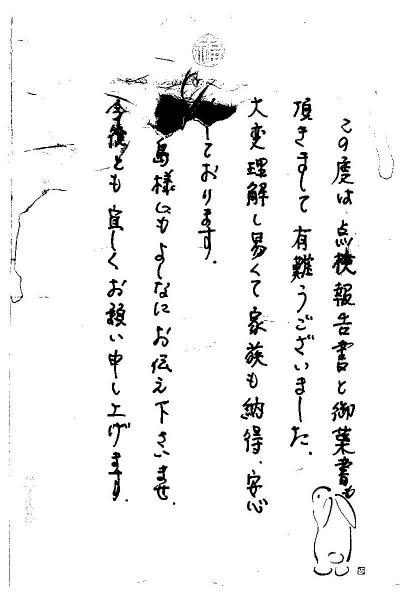 この度は点検報告書と御葉書も
頂きまして有難うございました、
大変理解し易くて家族も納得、安心
しております。
島様にもよしなにお伝え下さいませ、
今後とも宜しくお願い申し上げます。
福